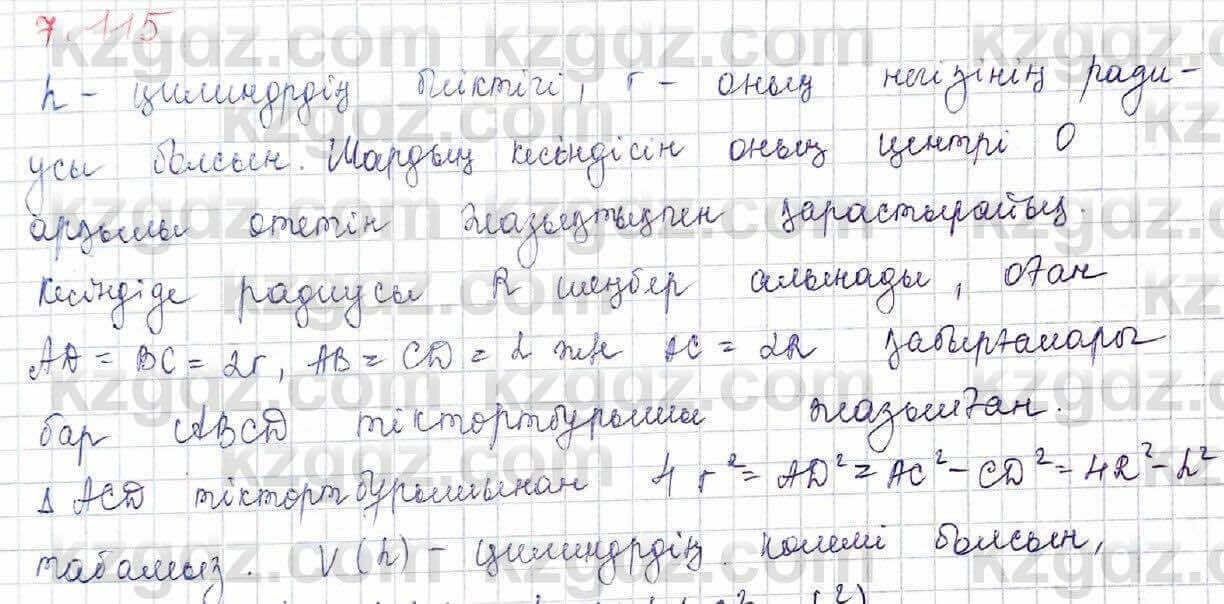 7.115
h - цилиндрдің биіктігі, r - оның негізінің ради-
усы болсын. Шардың кесіндісін оның центрі O
арқылы өтетін жазықтықпен қарастырайық.
Кесіндіде радиусы R шеңбер алынады, оған
AD = BC = 2r, AB = CD = h және AC = 2R қабырғалары
бар ABCD тіктөртбұрышы жазылған.
Δ ACD тіктөртбұрышынан 4r² = AD² = AC² - CD² = 4R² - h²
табамыз. V(h) - цилиндрдің көлемі болсын,